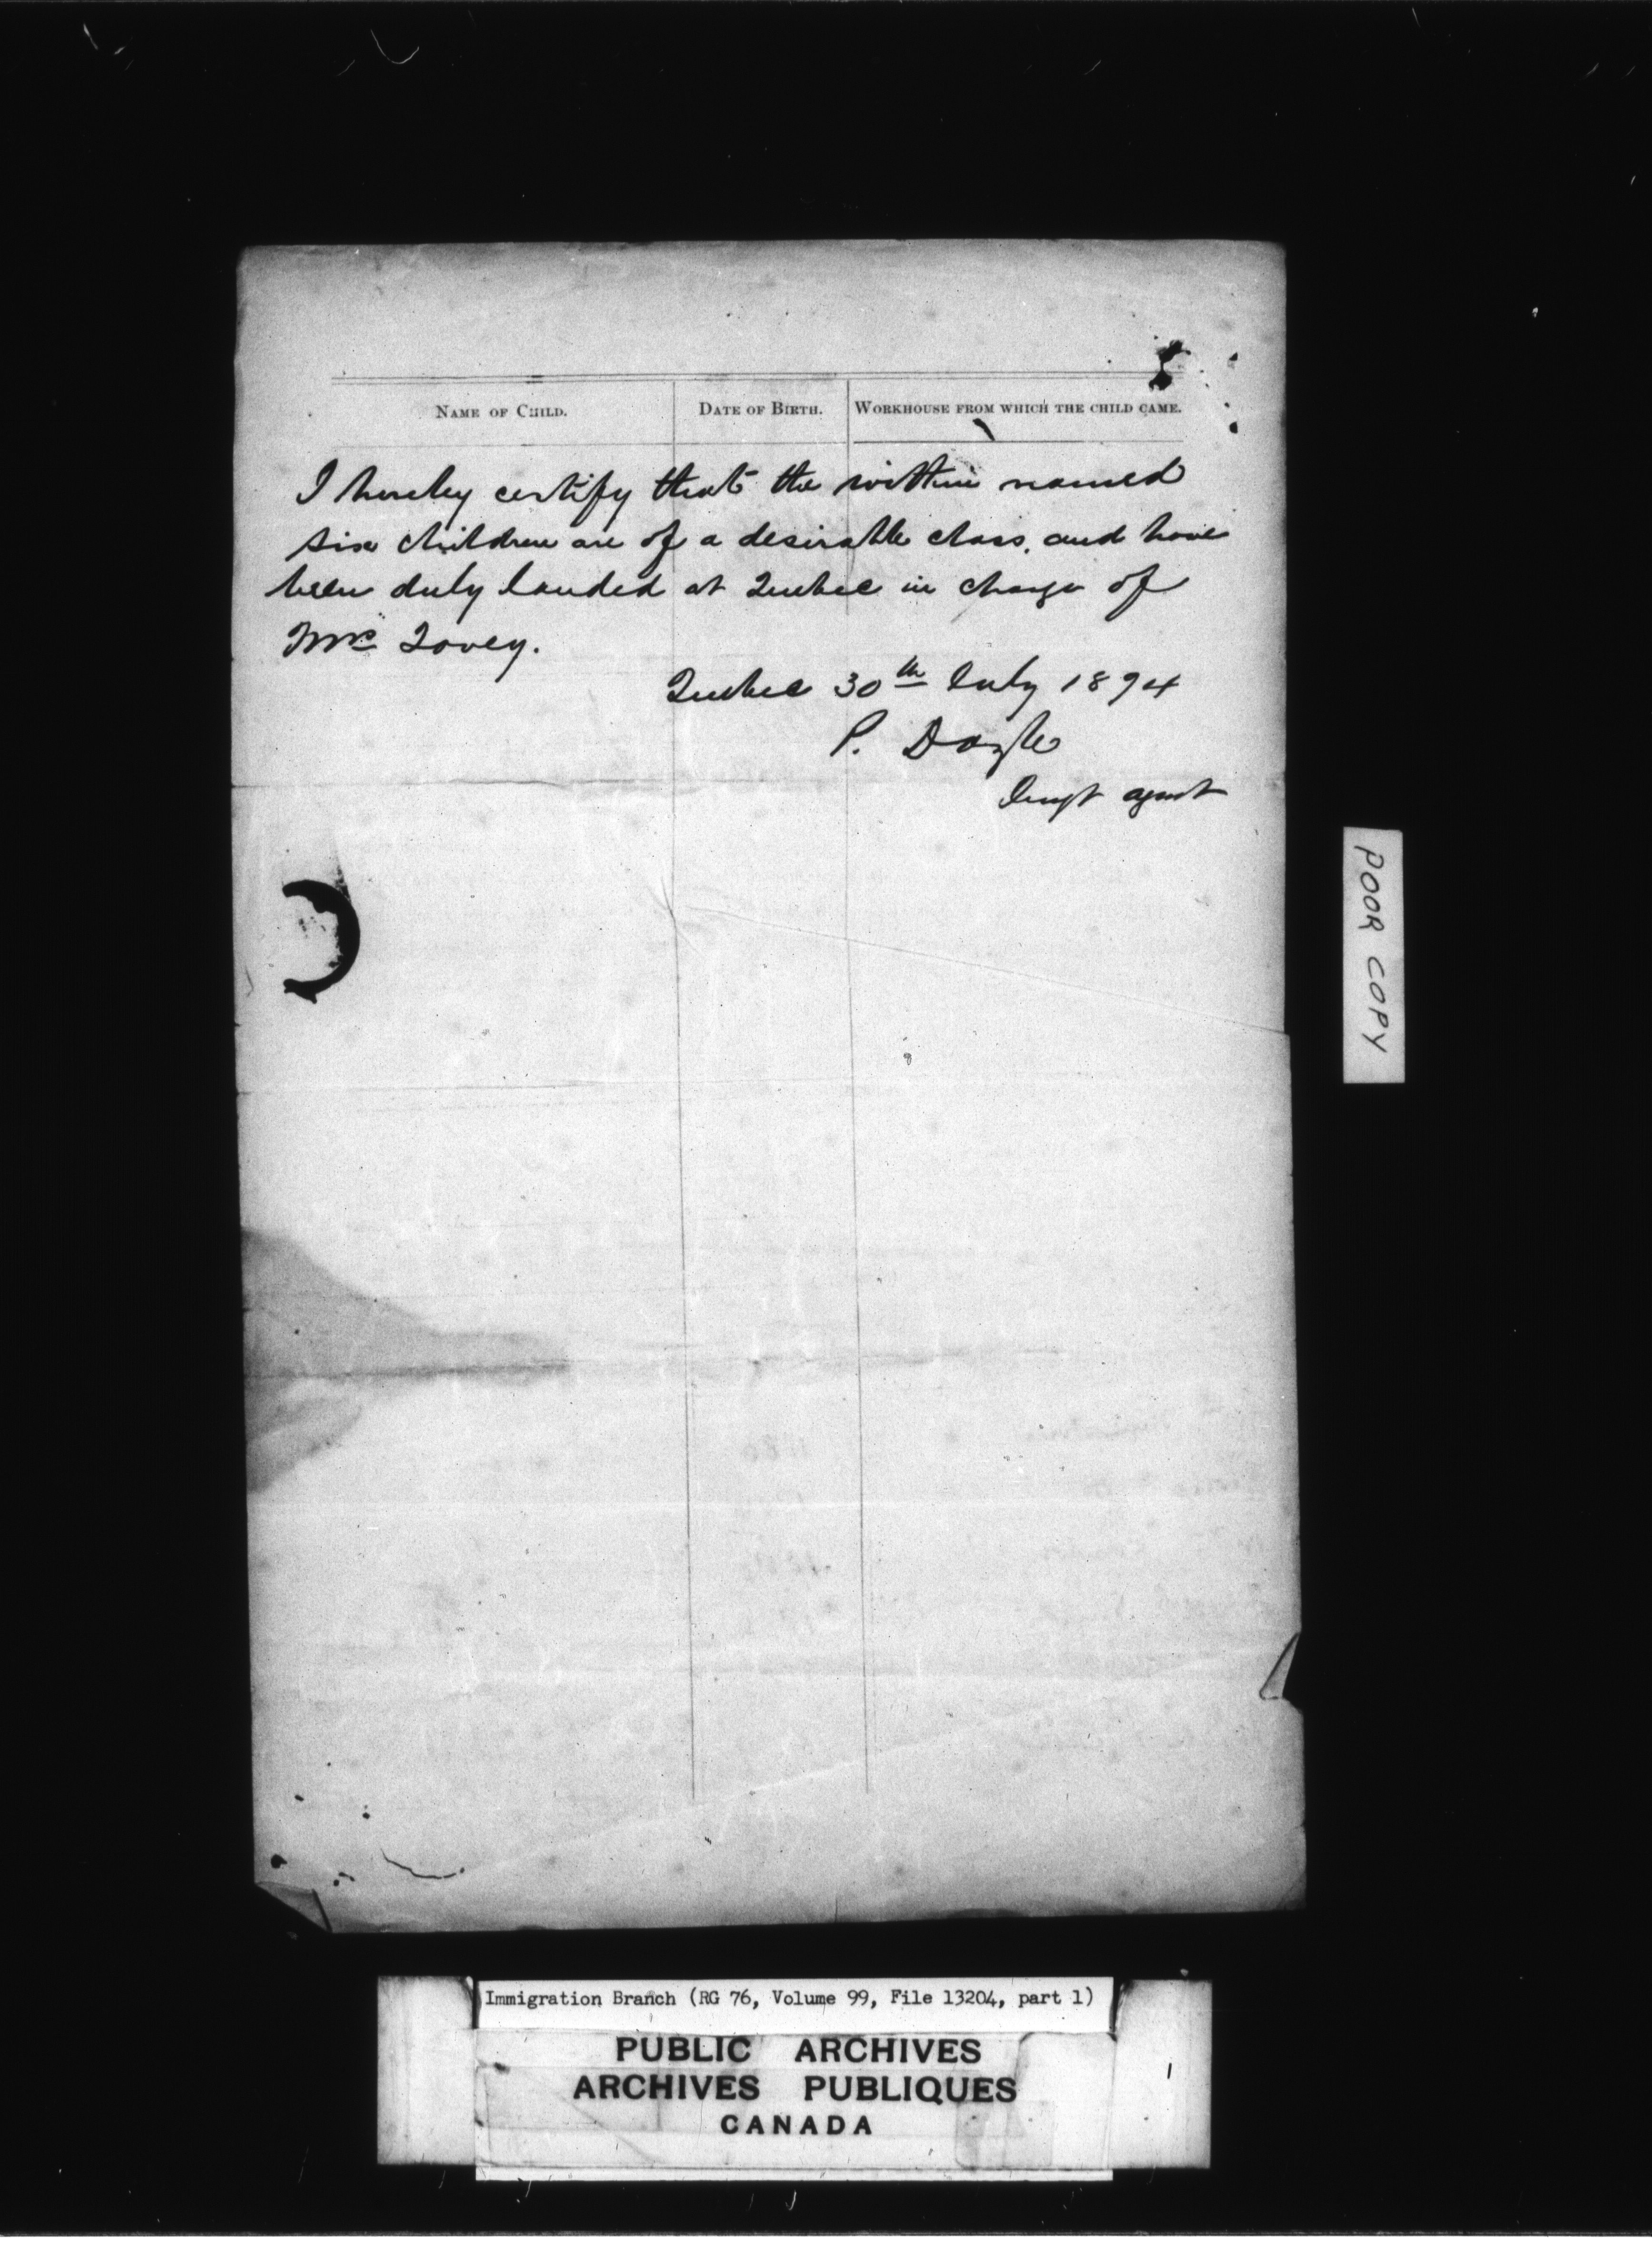 NAME OF CHILD. DATE OF BIRTH. WORKHOUSE FROM WHICH THE CHILD CAME.
I hereby certify that the within named
six children are of a desirable class, and have
been duly landed at Quebec in charge of
Mrs Tovey.
Quebec 30th July 1894
P. Doyle
Immgt agent
POOR COPY
Immigration Branch (RG 76, Volume 99, File 13204, part 1)
PUBLIC ARCHIVES
ARCHIVES PUBLIQUES
CANADA